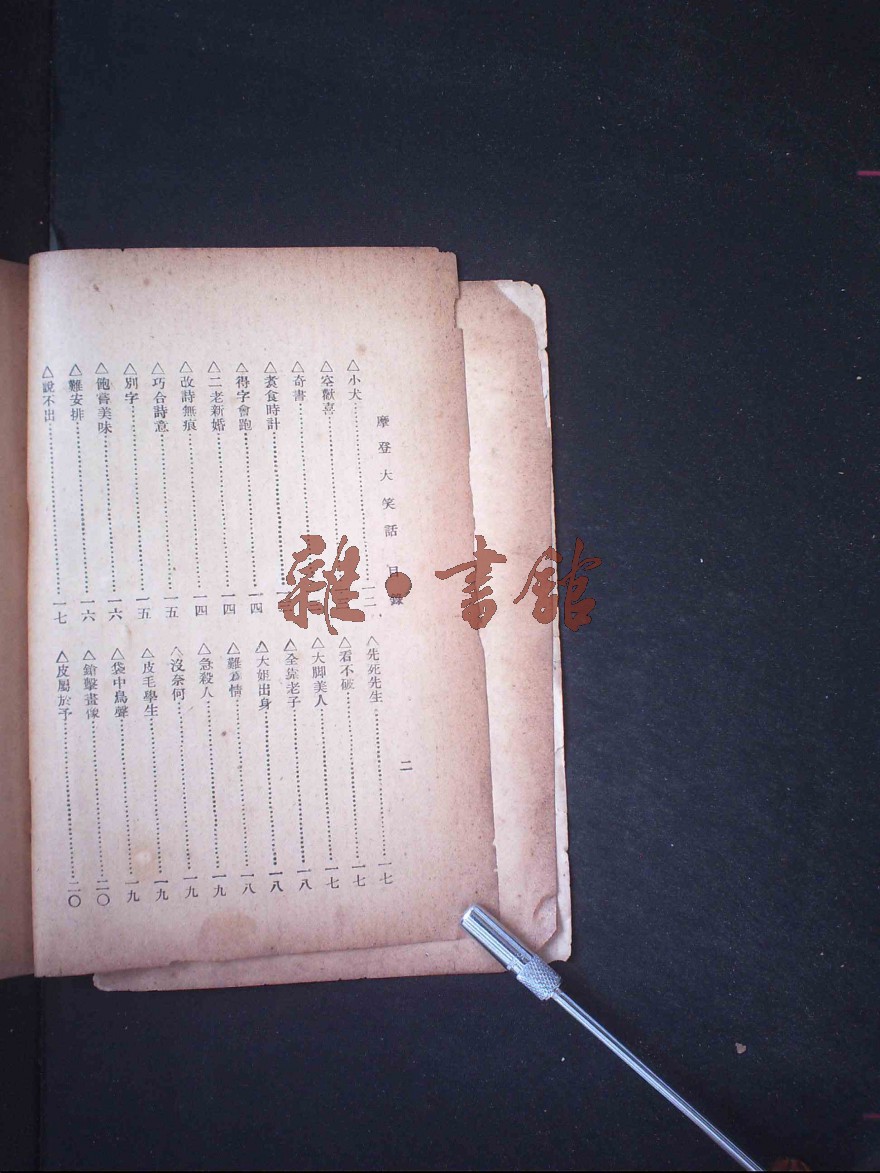 摩登大笑話 目錄
二
△小犬
△空歡喜
△奇書
△煮食時計
△得字會跑 一四
△二老新婚 一四
△改詩無痕 一四
△巧合詩意 一五
△別字 一五
△飽嘗美味 一六
△難安排 一六
△說不出 一七
△先死先生 一七
△看不破 一七
△大脚美人 一七
△全靠老子 一八
△大姐出身 一八
△難為情 一八
△急殺人 一九
△沒奈何 一九
△皮毛學生 一九
△袋中鳥聲 一九
△鎗擊畫像 二〇
△皮屬於予 二〇
雜·書館